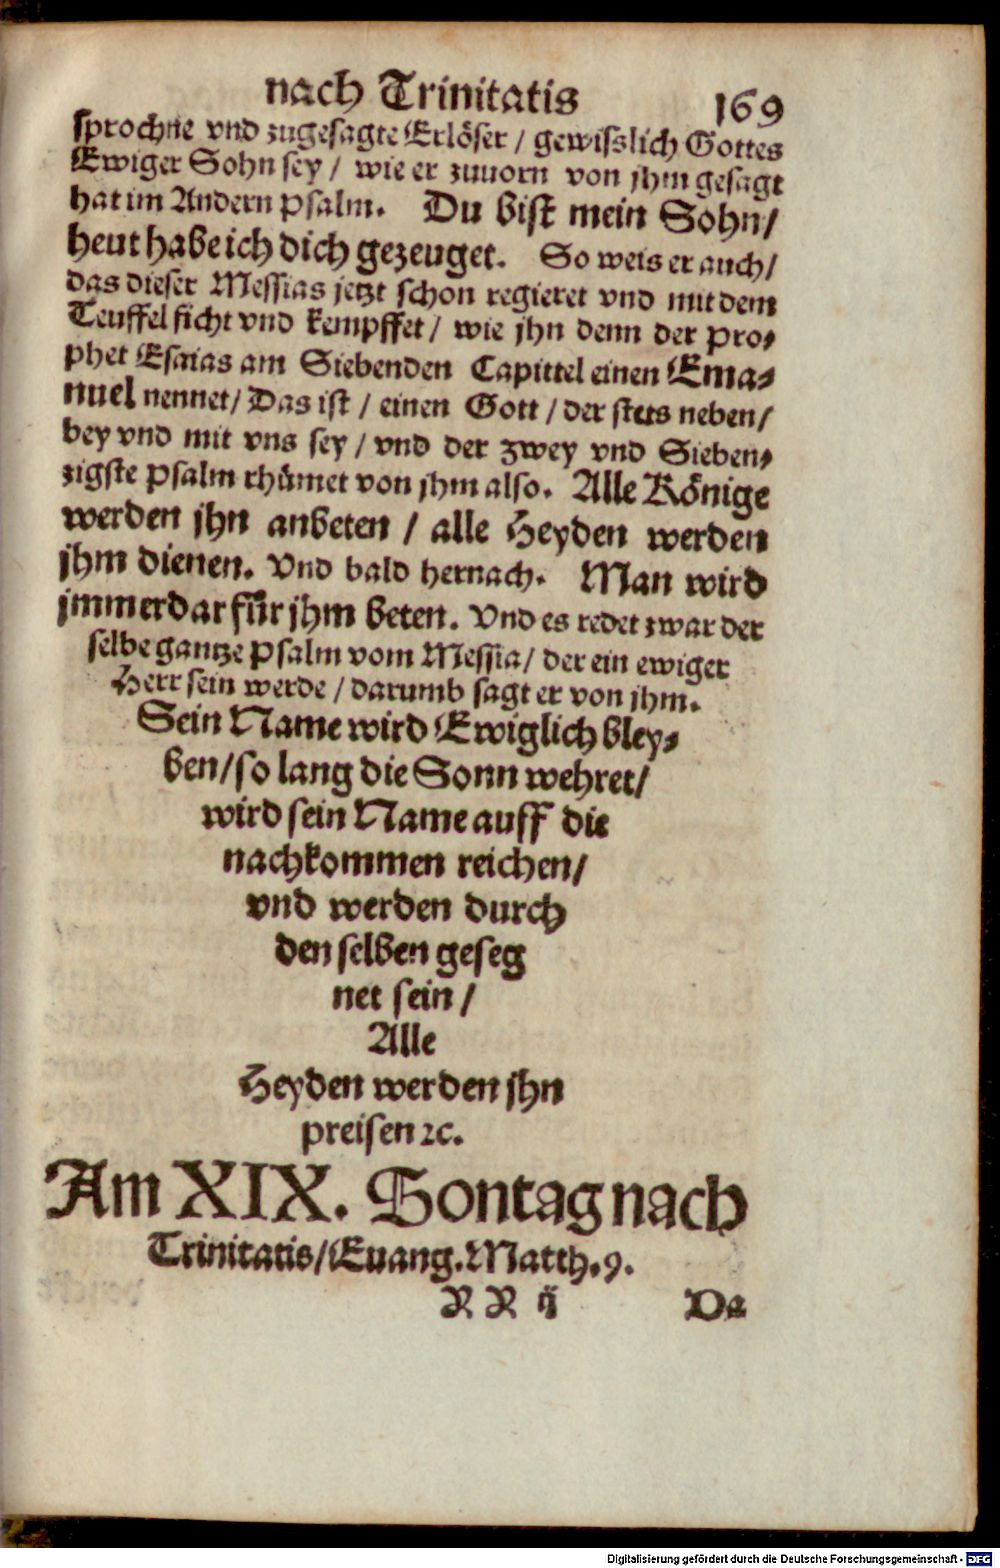 nach Trinitatis 169
sprochne vnd zugesagte Erlöser / gewißlich Gottes
Ewiger Sohn sey / wie er zuuorn von jhm gesagt
hat im Andern Psalm. Du bist mein Sohn/
heut habe ich dich gezeuget. So weis er auch/
das dieser Messias jetzt schon regieret vnd mit dem
Teuffel ficht vnd kempffet / wie jhn denn der Pro⸗
phet Esaias am Siebenden Capittel einen Ema⸗
nuel nennet/ Das ist / einen Gott / der stets neben/
bey vnd mit vns sey / vnd der zwey vnd Sieben⸗
zigste Psalm rhümet von jhm also. Alle Könige
werden jhn anbeten / alle Heyden werden
jhm dienen. Vnd bald hernach. Man wird
jmmerdar für jhm beten. Vnd es redet zwar der
selbe gantze Psalm vom Messia/ der ein ewiger
Herr sein werde / darumb sagt er von jhm.
Sein Name wird Ewiglich bley⸗
ben/ so lang die Sonn wehret/
wird sein Name auff die
nachkommen reichen/
vnd werden durch
den selben geseg
net sein /
Alle
Heyden werden jhn
preisen ꝛc.
Am XIX. Sontag nach
Trinitatis/ Euang. Matth. 9.
RR ij Da
Digitalisierung gefördert durch die Deutsche Forschungsgemeinschaft - DFG